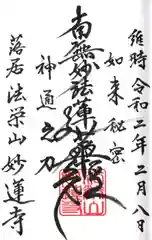 維時令和二年二月八日
如来秘密
南無妙法蓮華経
神通之力
落居法栄山妙蓮寺